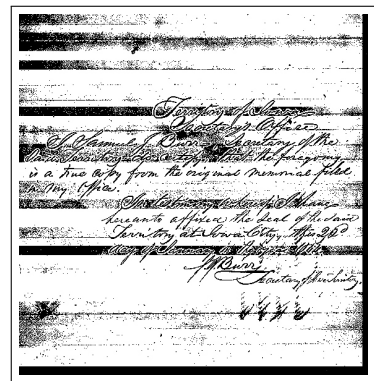 Territory of Iowa
Secretary's Office
I, Samuel J Burr Secretary of the
said Territory do certify that the foregoing
is a true copy from the original memorial filed
in my Office.
In testimony whereof I have
hereunto affixed the seal of the said
Territory at Iowa City, this
day of
J Burr
Secretary of the Territory